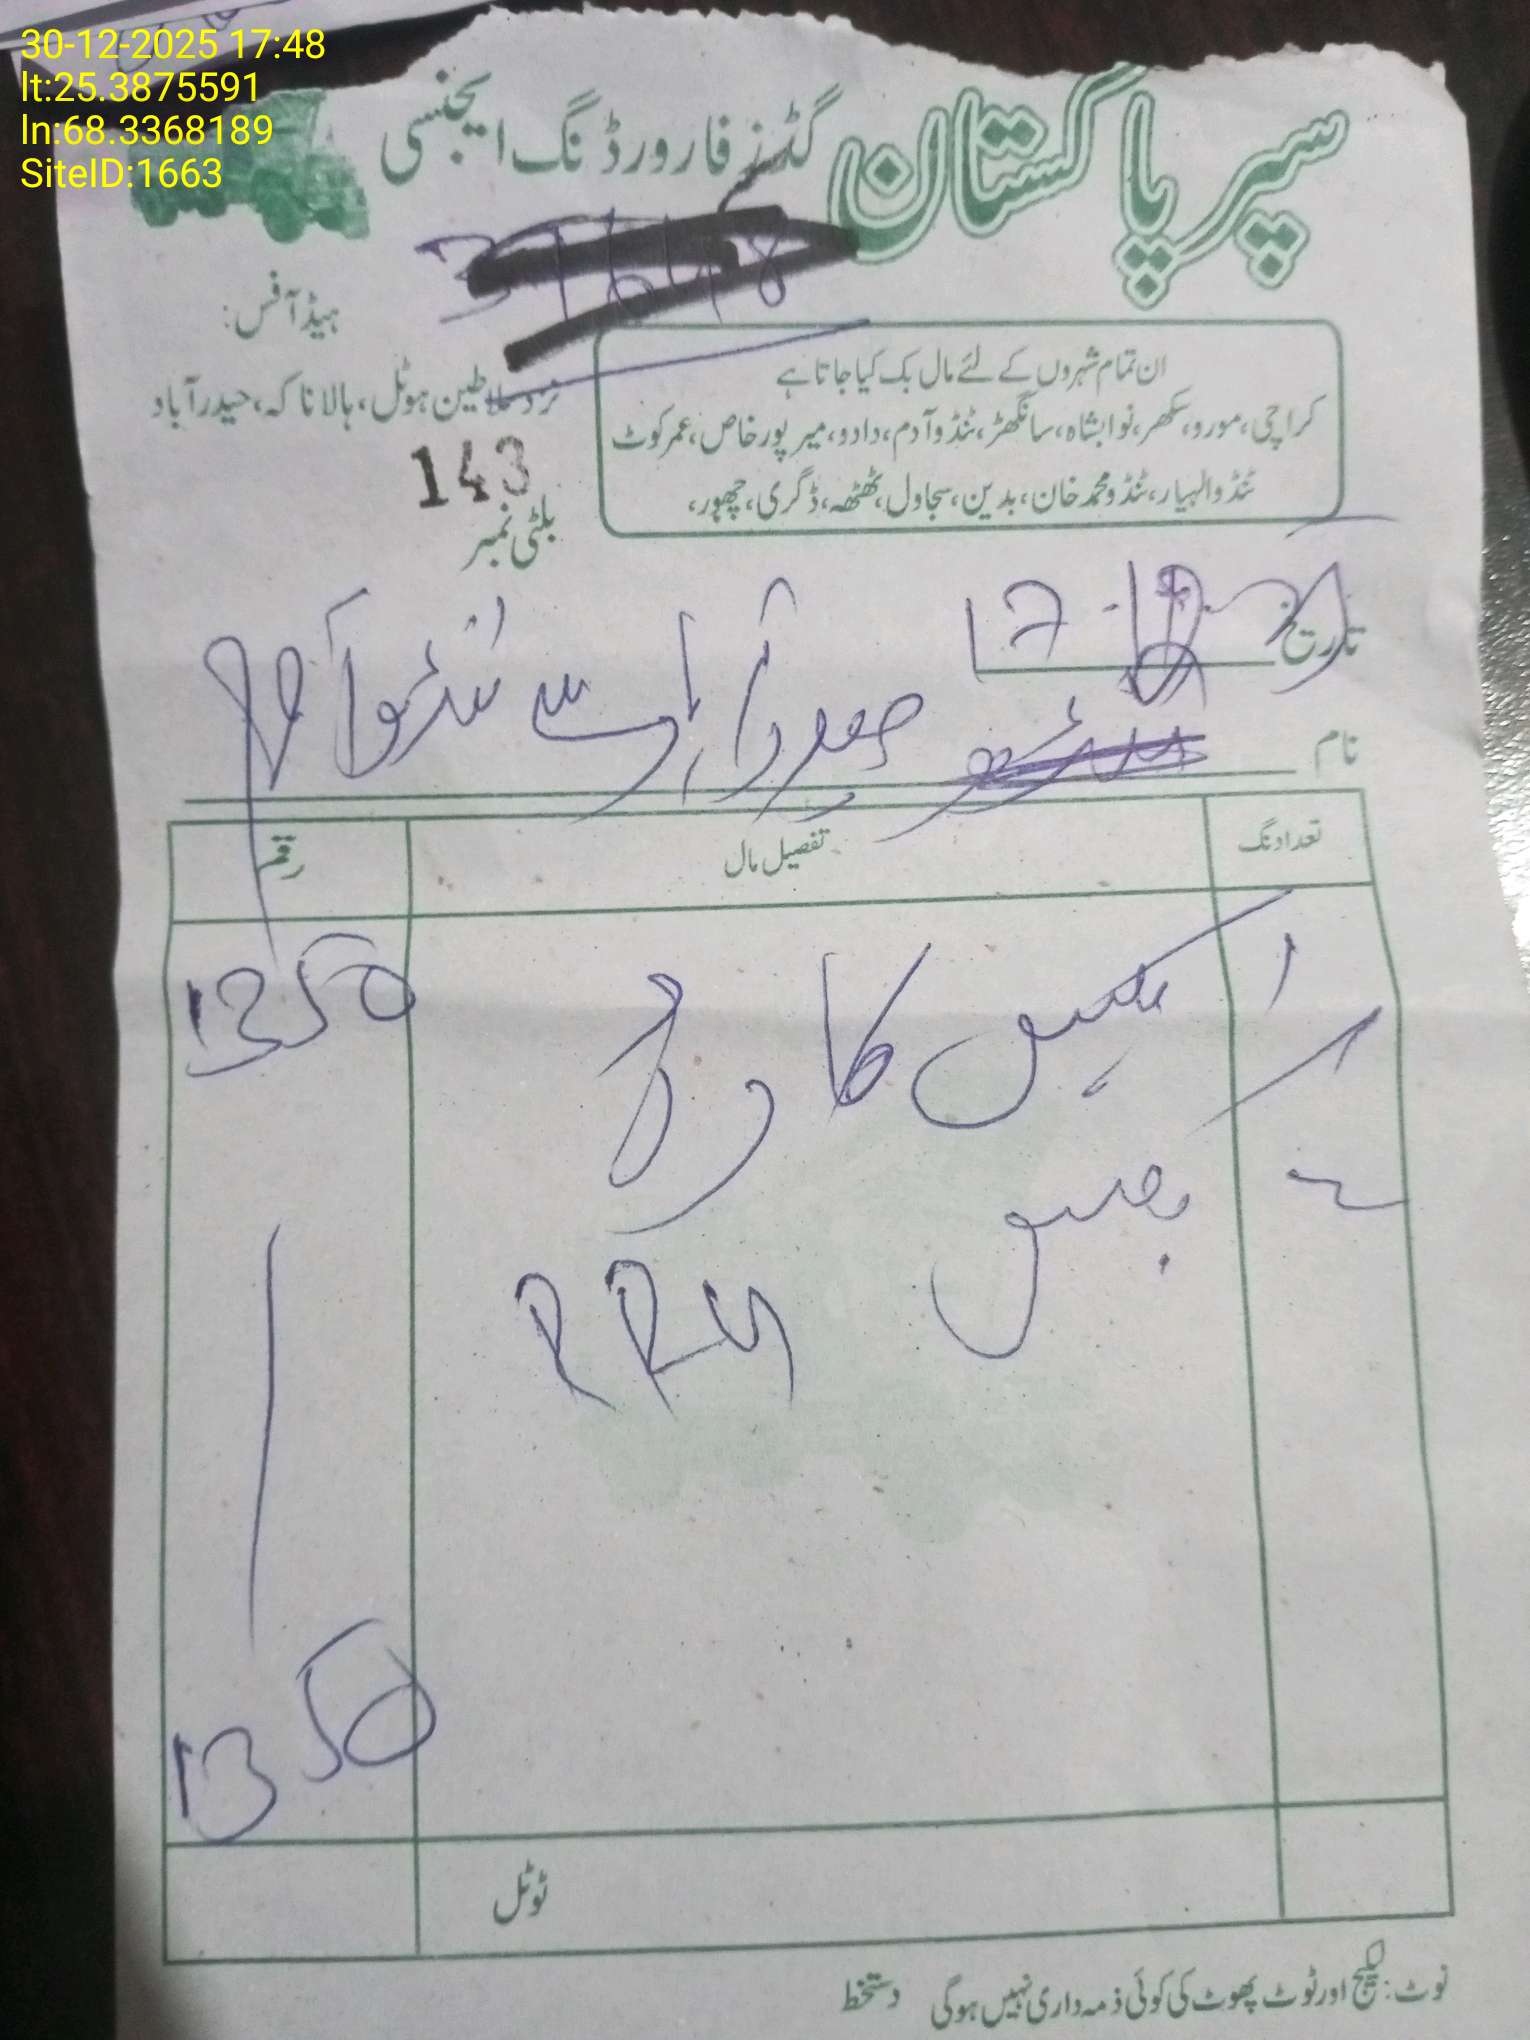 30-12-2025 17:48
lt:25.3875591
ln:68.3368189
SiteID:1663
سپر پاکستان گڈز فارورڈنگ ایجنسی
ہیڈ آفس:
ہوٹل، ہالا ناکہ، حیدرآباد
ان تمام شہروں کے لئے مال بک کیا جاتا ہے
کراچی، مورو، سکھر، نوابشاہ، سانگھڑ، ٹنڈو آدم، دادو، میرپور خاص، عمر کوٹ
ٹنڈو الہیار، ٹنڈو محمد خان، بدین، سجاول، ٹھٹھہ، ڈگری، چھور،
143
بلٹی نمبر
تاریخ 17-12-25
نام حیدرآباد سے ٹنڈو آدم
تعداد نگ تفصیل مال رقم
1 کارڈ 1350
2 بکس
RRU
1350
ٹوٹل
نوٹ: لیکیج اور ٹوٹ پھوٹ کی کوئی ذمہ داری نہیں ہوگی دستخط